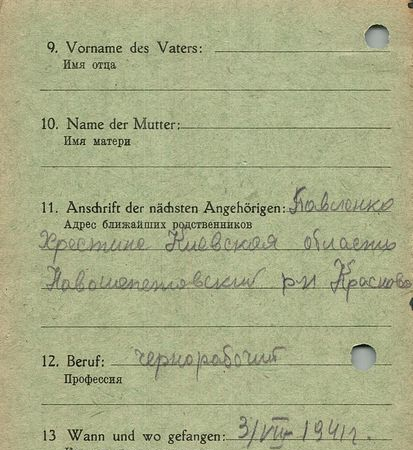 9. Vorname des Vaters:
Имя отца
10. Name der Mutter:
Имя матери
11. Anschrift der nächsten Angehörigen: Павленко
Адрес ближайших родственников
Хрестина Киевская область
Новошепетовский р-н Красно
12. Beruf: чернорабочий
Профессия
13 Wann und wo gefangen: 3/VII-1941г.